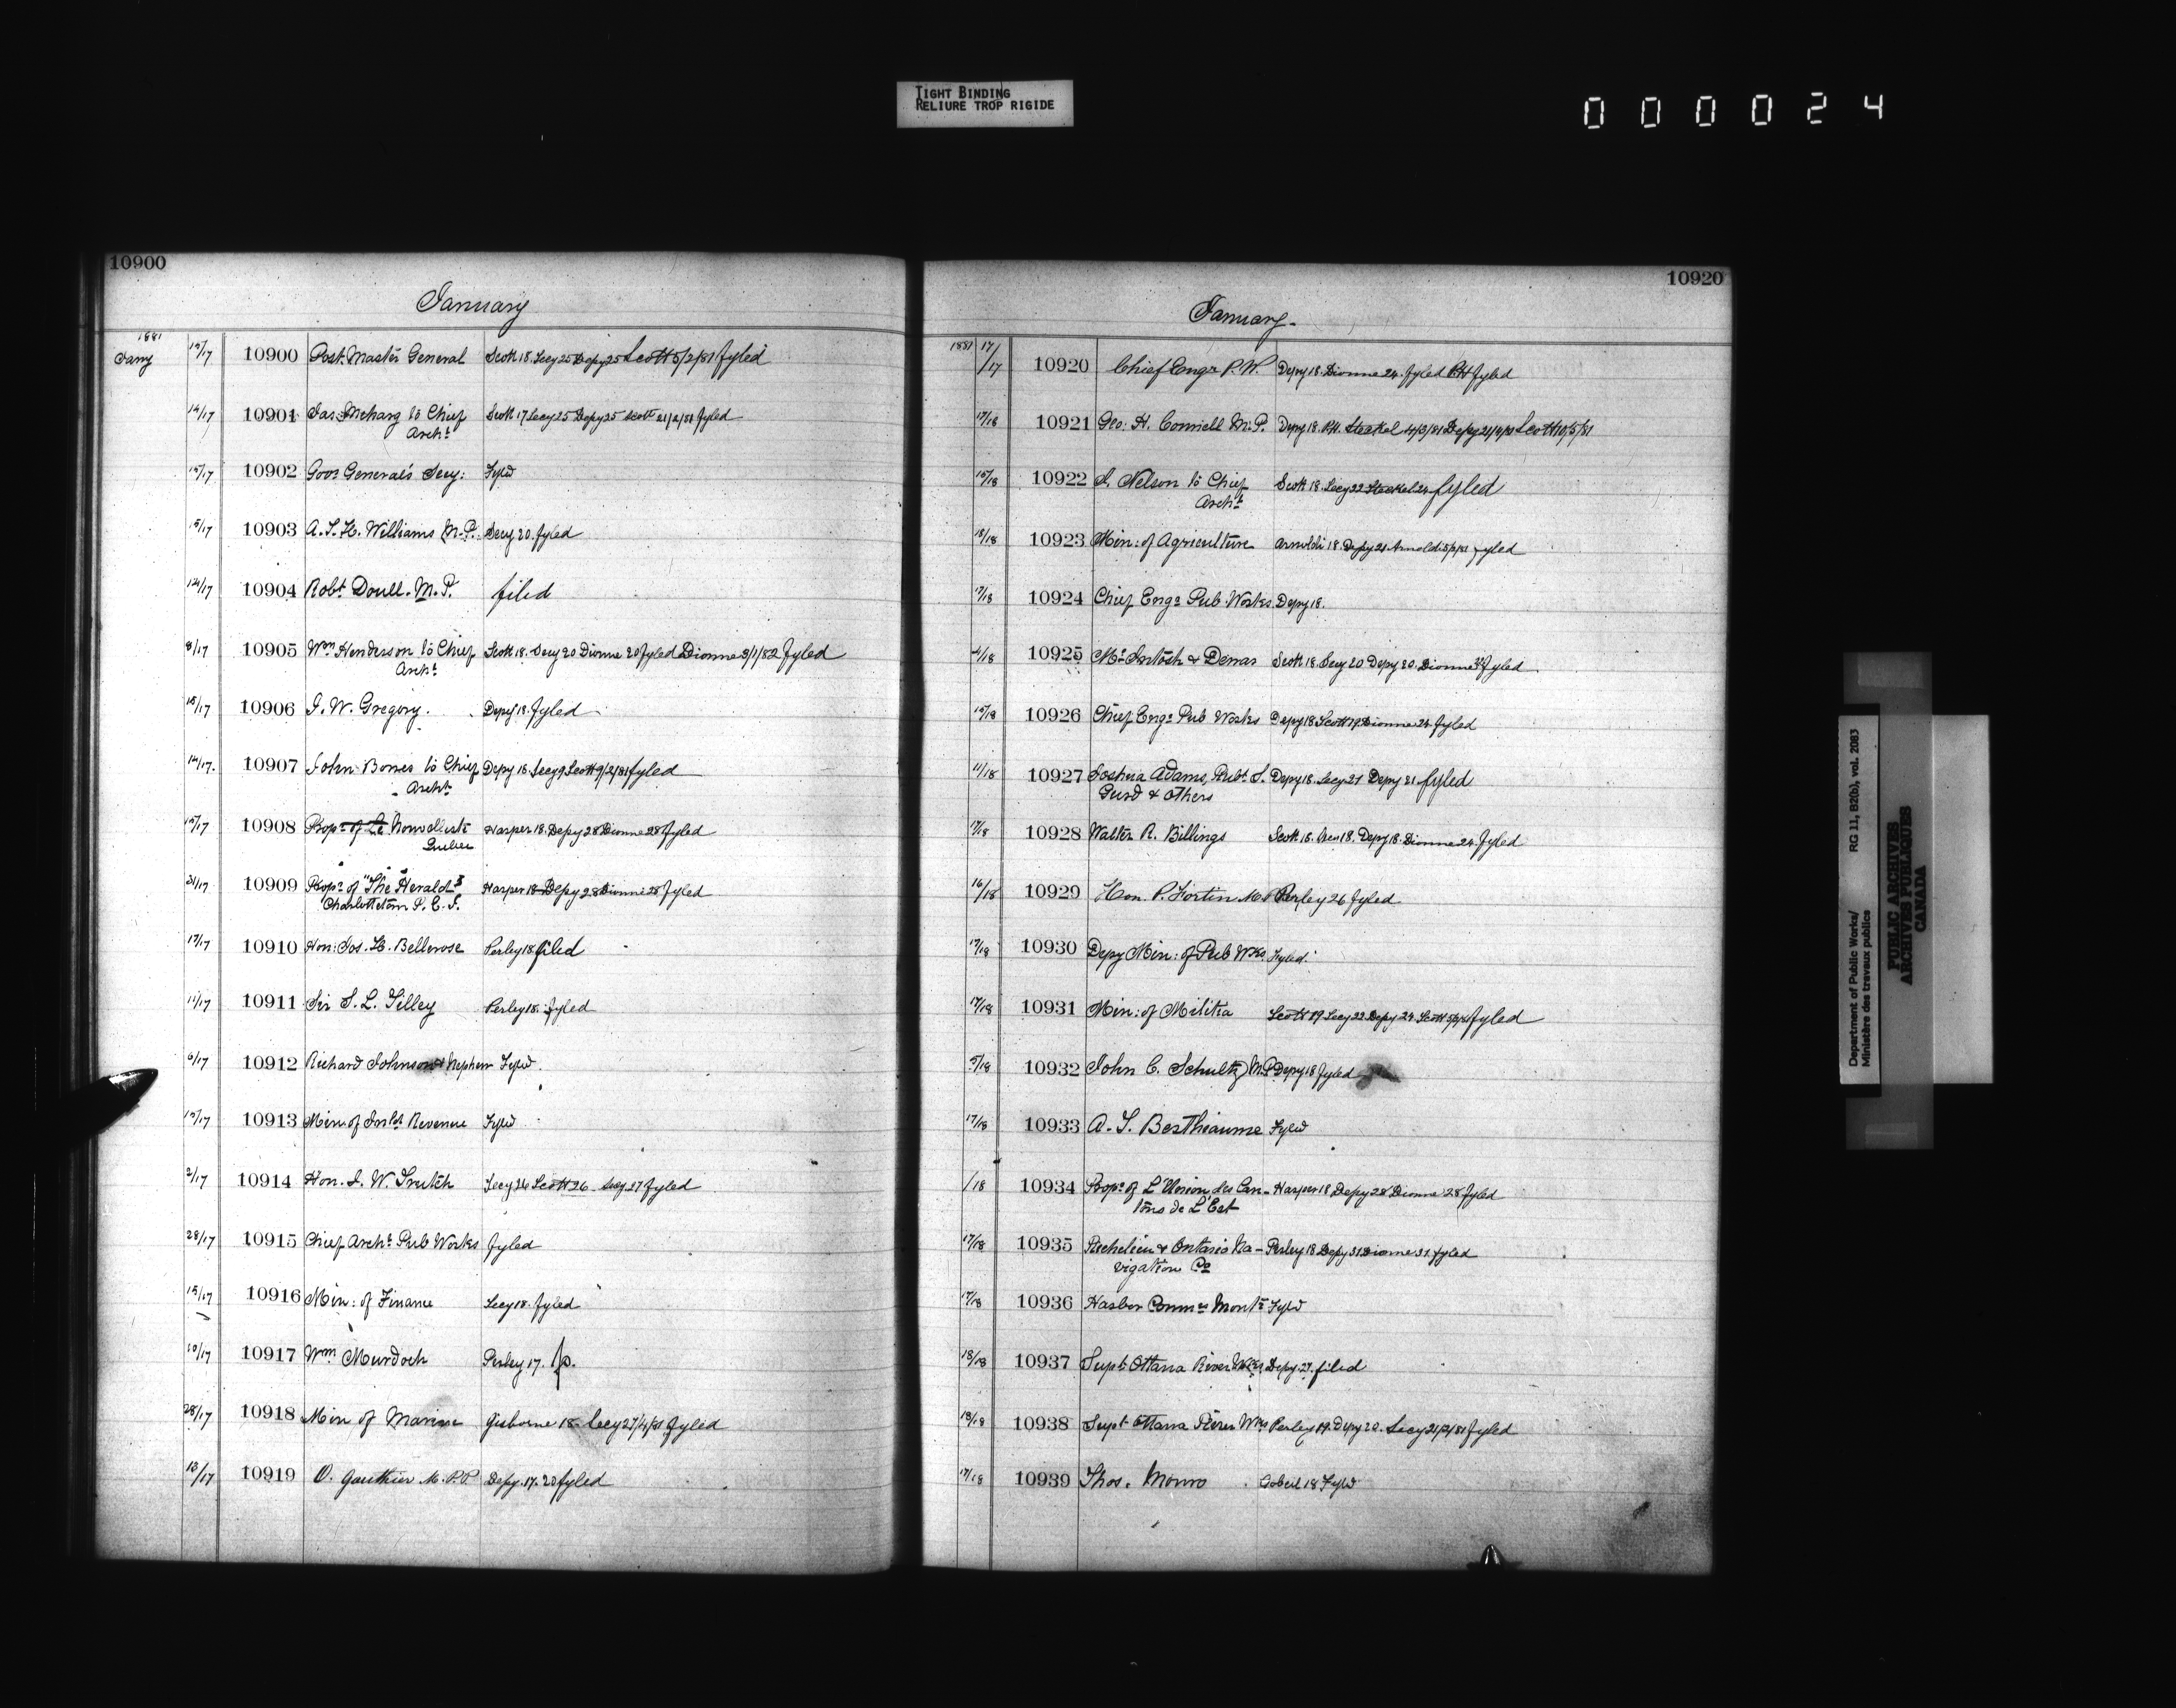 TIGHT BINDING
RELIURE TROP RIGIDE
000024
10900
January
1881
Jany 15/17 10900 Post Master General Scott 18 Secy 25 Depy 25 Scott 5/2/81 fyled
14/17 10901 Jas: Meharg to Chief Scott 17 Secy 25 Depy 25 Scott 21/2/81 fyled
Archt
15/17 10902 Govr General's Secy: Fyled
15/17 10903 A.T.H. Williams M.P. Secy 20 fyled
14/17 10904 Robt Doull. M.P. filed
8/17 10905 Wm Henderson to Chief Scott 18. Secy 20 Dionne 20 fyled Dionne 3/1/82 fyled
Archt
15/17 10906 J.W. Gregory. Depy 18. fyled
14/17 10907 John Bowes to Chief Depy 18. Secy 9 Scott 9/2/81 fyled
Archt
15/17 10908 Propr of Le Nouvelliste Harper 18. Depy 28 Dionne 28 fyled
Quebec
31/17 10909 Propr of "The Herald" Harper 18 Depy 28 Dionne 28 fyled
Charlottetown P.E.I.
17/17 10910 Hon: Jos. H. Bellerose Perley 18 filed
11/17 10911 Sir S.L. Tilley Perley 18. fyled
6/17 10912 Richard Johnson & Nephew Fyled.
15/17 10913 Min. of Inld Revenue Fyled
2/17 10914 Hon. J.W. Trutch Secy 26 Scott 26 Secy 27 fyled
28/17 10915 Chief Archt Pub Works fyled
15/17 10916 Min: of Finance Secy 18. fyled
10/17 10917 Wm Murdoch Perley 17. p.
28/17 10918 Min of Marine Gisborne 18. Secy 27/4/81 fyled
13/17 10919 O. Gauthier M.P.P. Depy. 17. 20 fyled
10920
January.
1881 17/17 10920 Chief Engr P.W. Depy 18. Dionne 24. fyled P.H fyled
17/18 10921 Geo: H. Connell M.P. Depy 18. P.H. Steckel 4/3/81 Depy Scott 10/5/81
15/18 10922 J. Nelson to Chief Scott 18. Secy 22 Steckel 24 fyled
Archt
18/18 10923 Min: of Agriculture Arnoldi 18. Depy 21 Arnoldi fyled
17/18 10924 Chief Engr Pub. Works. Depy 18.
4/18 10925 McIntosh & Scott 18. Secy 20 Depy 20. Dionne fyled.
15/18 10926 Chief Engr Pub Works Depy 18 Scott 19 Dionne 24 fyled
11/18 10927 Joshua Adams, Robt S. Depy 18. Secy 21 Depy 21 fyled
Gurd & Others
17/18 10928 Walter R. Billings Scott 18. 18. Depy 18. Dionne 24. fyled
16/18 10929 Hon. P. Fortin M.P. Perley 26 fyled
17/18 10930 Depy Min: of Pub Wks. Fyled.
17/18 10931 Min: of Militia Scott 19 Secy 22 Depy 24 Scott fyled
5/18 10932 John C. Schultz M.P. Depy 18 fyled
17/18 10933 A.T. Berthiaume Fyled
/18 10934 Propr of L'Union des Can- Harper 18 Depy 28 Dionne 28 fyled
tons de L'Est
17/18 10935 Richelieu & Ontario Na- Perley 18 Depy 31 Dionne 31 fyled
vigation Co
17/18 10936 Harbor Commrs Montl Fyled
18/18 10937 Supt Ottawa River Wks Depy. 27. filed
18/18 10938 Supt Ottawa River Wks Perley 19. Depy 20. Secy fyled
17/18 10939 Thos. Monro Gobeil 18 Fyled
Department of Public Works/ RG 11, B2(b), vol. 2083
Ministère des travaux publics
PUBLIC ARCHIVES
ARCHIVES PUBLIQUES
CANADA